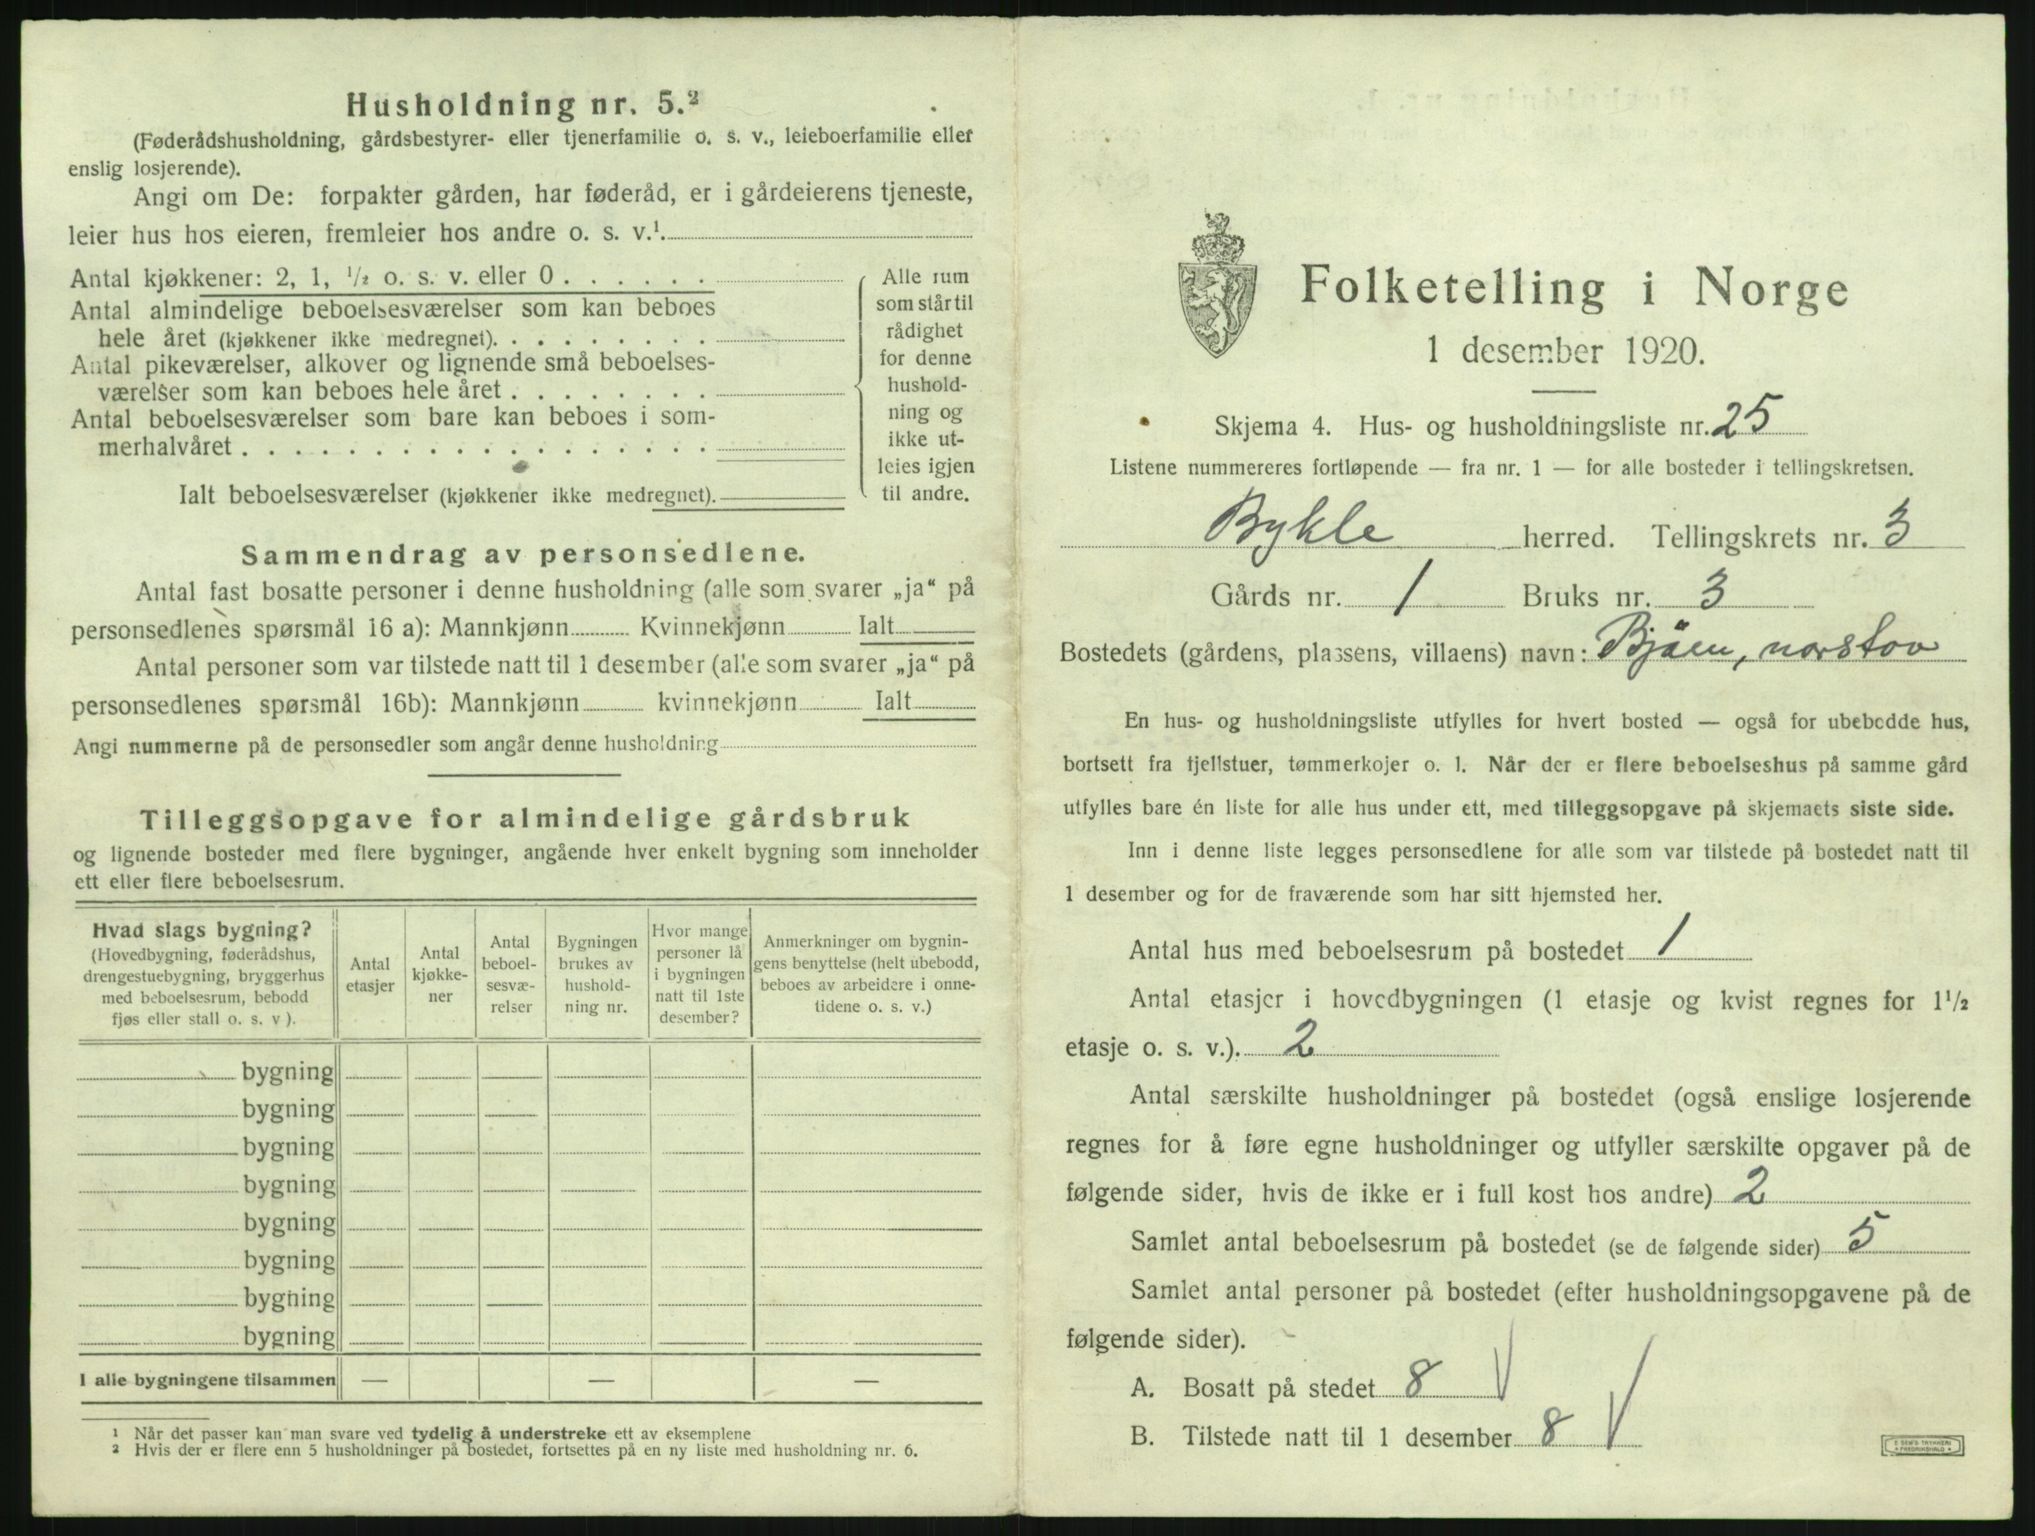 Husholdning nr. 5.²
(Føderådshusholdning, gårdsbestyrer- eller tjenerfamilie o. s. v., leieboerfamilie eller
enslig losjerende).
Angi om De: forpakter gården, har føderåd, er i gårdeierens tjeneste,
leier hus hos eieren, fremleier hos andre o. s. v.¹.
Antal kjøkkener: 2, 1, ¹/₂ o. s. v. eller 0 . . . . . .
Antal almindelige beboelsesværelser som kan beboes
hele året (kjøkkener ikke medregnet). . . . . . . . .
Antal pikeværelser, alkover og lignende små beboelses-
værelser som kan beboes hele året . . . . . . . .
Antal beboelsesværelser som bare kan beboes i som-
merhalvåret . . . . . . . . . . . . . . . . . .
Ialt beboelsesværelser (kjøkkener ikke medregnet).
Alle rum
som står til
rådighet
for denne
hushold-
ning og
ikke ut-
leies igjen
til andre.
Sammendrag av personsedlene.
Antal fast bosatte personer i denne husholdning (alle som svarer „ja“ på
personsedlenes spørsmål 16 a): Mannkjønn Kvinnekjønn Ialt
Antal personer som var tilstede natt til 1 desember (alle som svarer „ja“ på
personsedlenes spørsmål 16b): Mannkjønn kvinnekjønn Ialt
Angi nummerne på de personsedler som angår denne husholdning
Tilleggsopgave for almindelige gårdsbruk
og lignende bosteder med flere bygninger, angående hver enkelt bygning som inneholder
ett eller flere beboelsesrum.
Hvad slags bygning?
(Hovedbygning, føderådshus,
drengestuebygning, bryggerhus
med beboelsesrum, bebodd
fjøs eller stall o. s. v ).
Antal
etasjer
Antal
kjøkke-
ner
Antal
beboel-
sesvæ-
relser
Bygningen
brukes av
hushold-
ning nr.
Hvor mange
personer lå
i bygningen
natt til 1ste
desember?
Anmerkninger om bygnin-
gens benyttelse (helt ubebodd,
beboes av arbeidere i onne-
tidene o. s. v.)
bygning
bygning
bygning
bygning
bygning
bygning
bygning
bygning
I alle bygningene tilsammen — — —
¹ Når det passer kan man svare ved tydelig å understreke ett av eksemplene
² Hvis der er flere enn 5 husholdninger på bostedet, fortsettes på en ny liste med husholdning nr. 6.
Folketelling i Norge
1 desember 1920.
Skjema 4. Hus- og husholdningsliste nr. 25
Listene nummereres fortløpende — fra nr. 1 — for alle bosteder i tellingskretsen.
Bykle herred. Tellingskrets nr. 3
Gårds nr. 1 Bruks nr. 3
Bostedets (gårdens, plassens, villaens) navn: Bjåen, norstov
En hus- og husholdningsliste utfylles for hvert bosted — også for ubebodde hus,
bortsett fra fjellstuer, tømmerkojer o. l. Når der er flere beboelseshus på samme gård
utfylles bare én liste for alle hus under ett, med tilleggsopgave på skjemaets siste side.
Inn i denne liste legges personsedlene for alle som var tilstede på bostedet natt til
1 desember og for de fraværende som har sitt hjemsted her.
Antal hus med beboelsesrum på bostedet 1
Antal etasjer i hovedbygningen (1 etasje og kvist regnes for 1¹/₂
etasje o. s. v.). 2
Antal særskilte husholdninger på bostedet (også enslige losjerende
regnes for å føre egne husholdninger og utfyller særskilte opgaver på de
følgende sider, hvis de ikke er i full kost hos andre) 2
Samlet antal beboelsesrum på bostedet (se de følgende sider) 5
Samlet antal personer på bostedet (efter husholdningsopgavene på de
følgende sider).
A. Bosatt på stedet 8 √
B. Tilstede natt til 1 desember 8 √